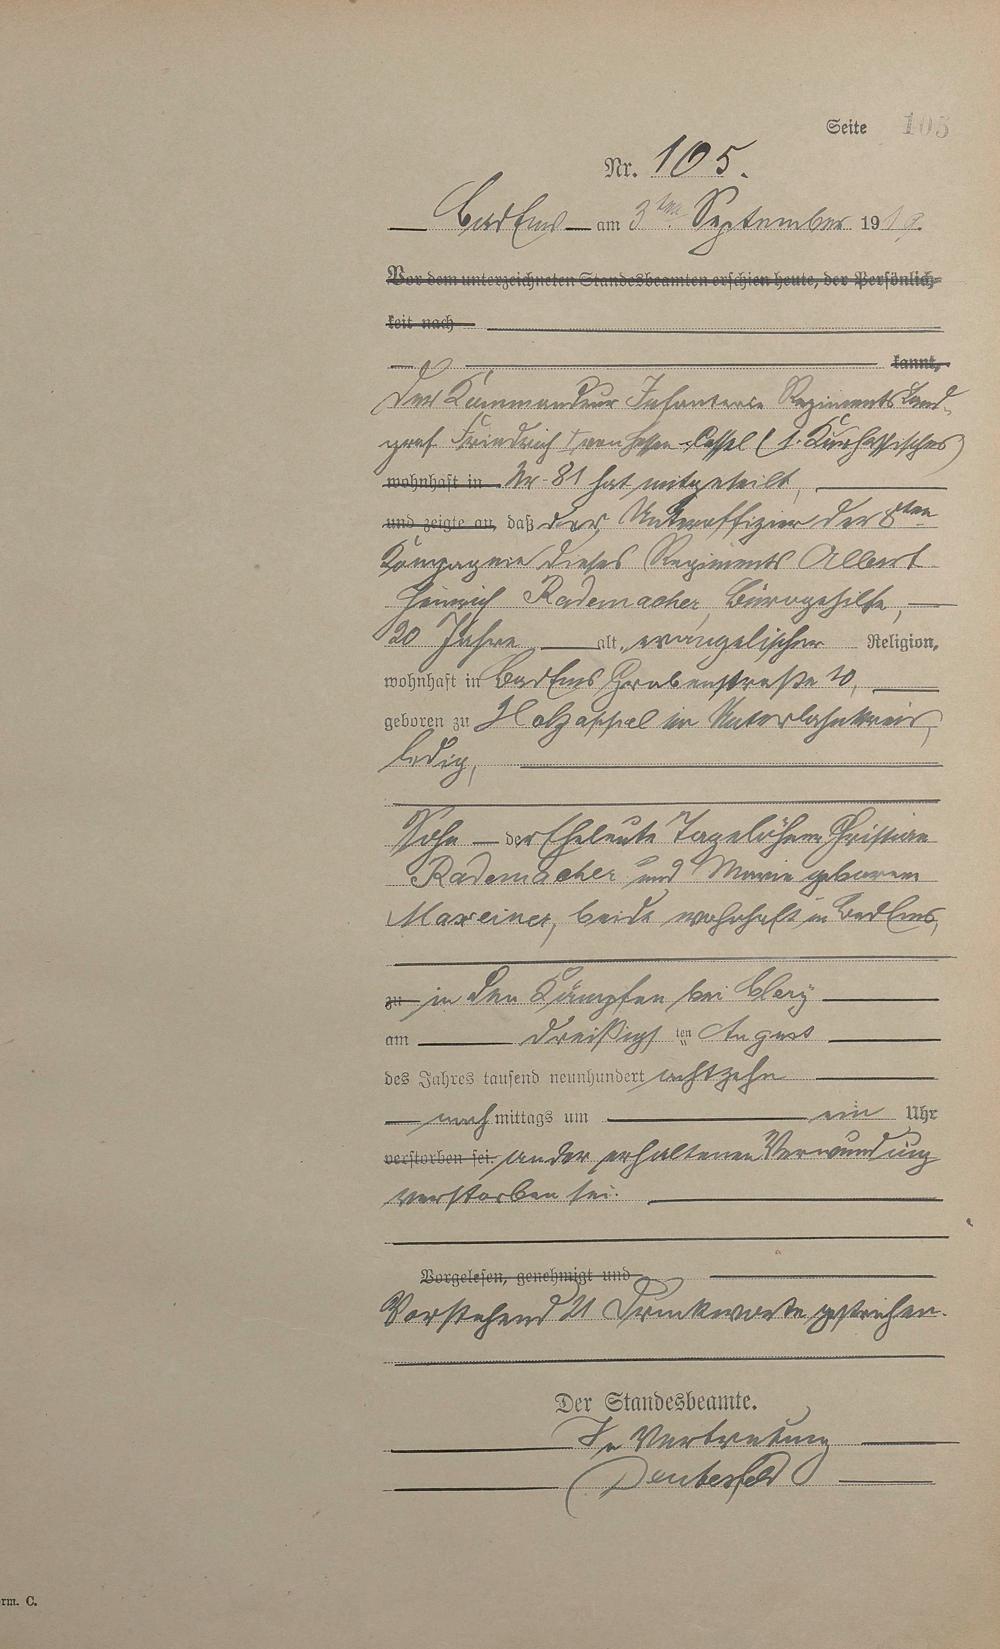 Seite 105
Nr. 105.
Bad Ems am 3ten September 19
Vor dem unterzeichneten Standesbeamten erschien heute, der Persönlich-
keit nach
kannt,
Der Kommandeur Infanterie Regiments Land-
graf Friedrich I von Hessen-Cassel (1. Kurhessisches)
wohnhaft in Nr. 81 hat mitgeteilt,
und zeigte an, daß der Unteroffizier der 8ten
Kompagnie dieses Regiments Albert
Heinrich Rademacher, Bürogehilfe,
20 Jahre alt, evangelischer Religion,
wohnhaft in Bad Ems Grabenstraße 20,
geboren zu Holzappel im Unterlahnkreis,
ledig,
Sohn der Eheleute Tagelöhner Christian
Rademacher und Marie geborenen
Maxeiner, beide wohnhaft in Bad Ems,
zu in den Kämpfen bei Clery
am dreißigsten August
des Jahres tausend neunhundert achtzehn
nachmittags um ein Uhr
verstorben sei. an der erhaltenen Verwundung
verstorben sei.
Vorgelesen, genehmigt und
Vorstehend 21 Druckworte gestrichen.
Der Standesbeamte.
In Vertretung
rm. C.